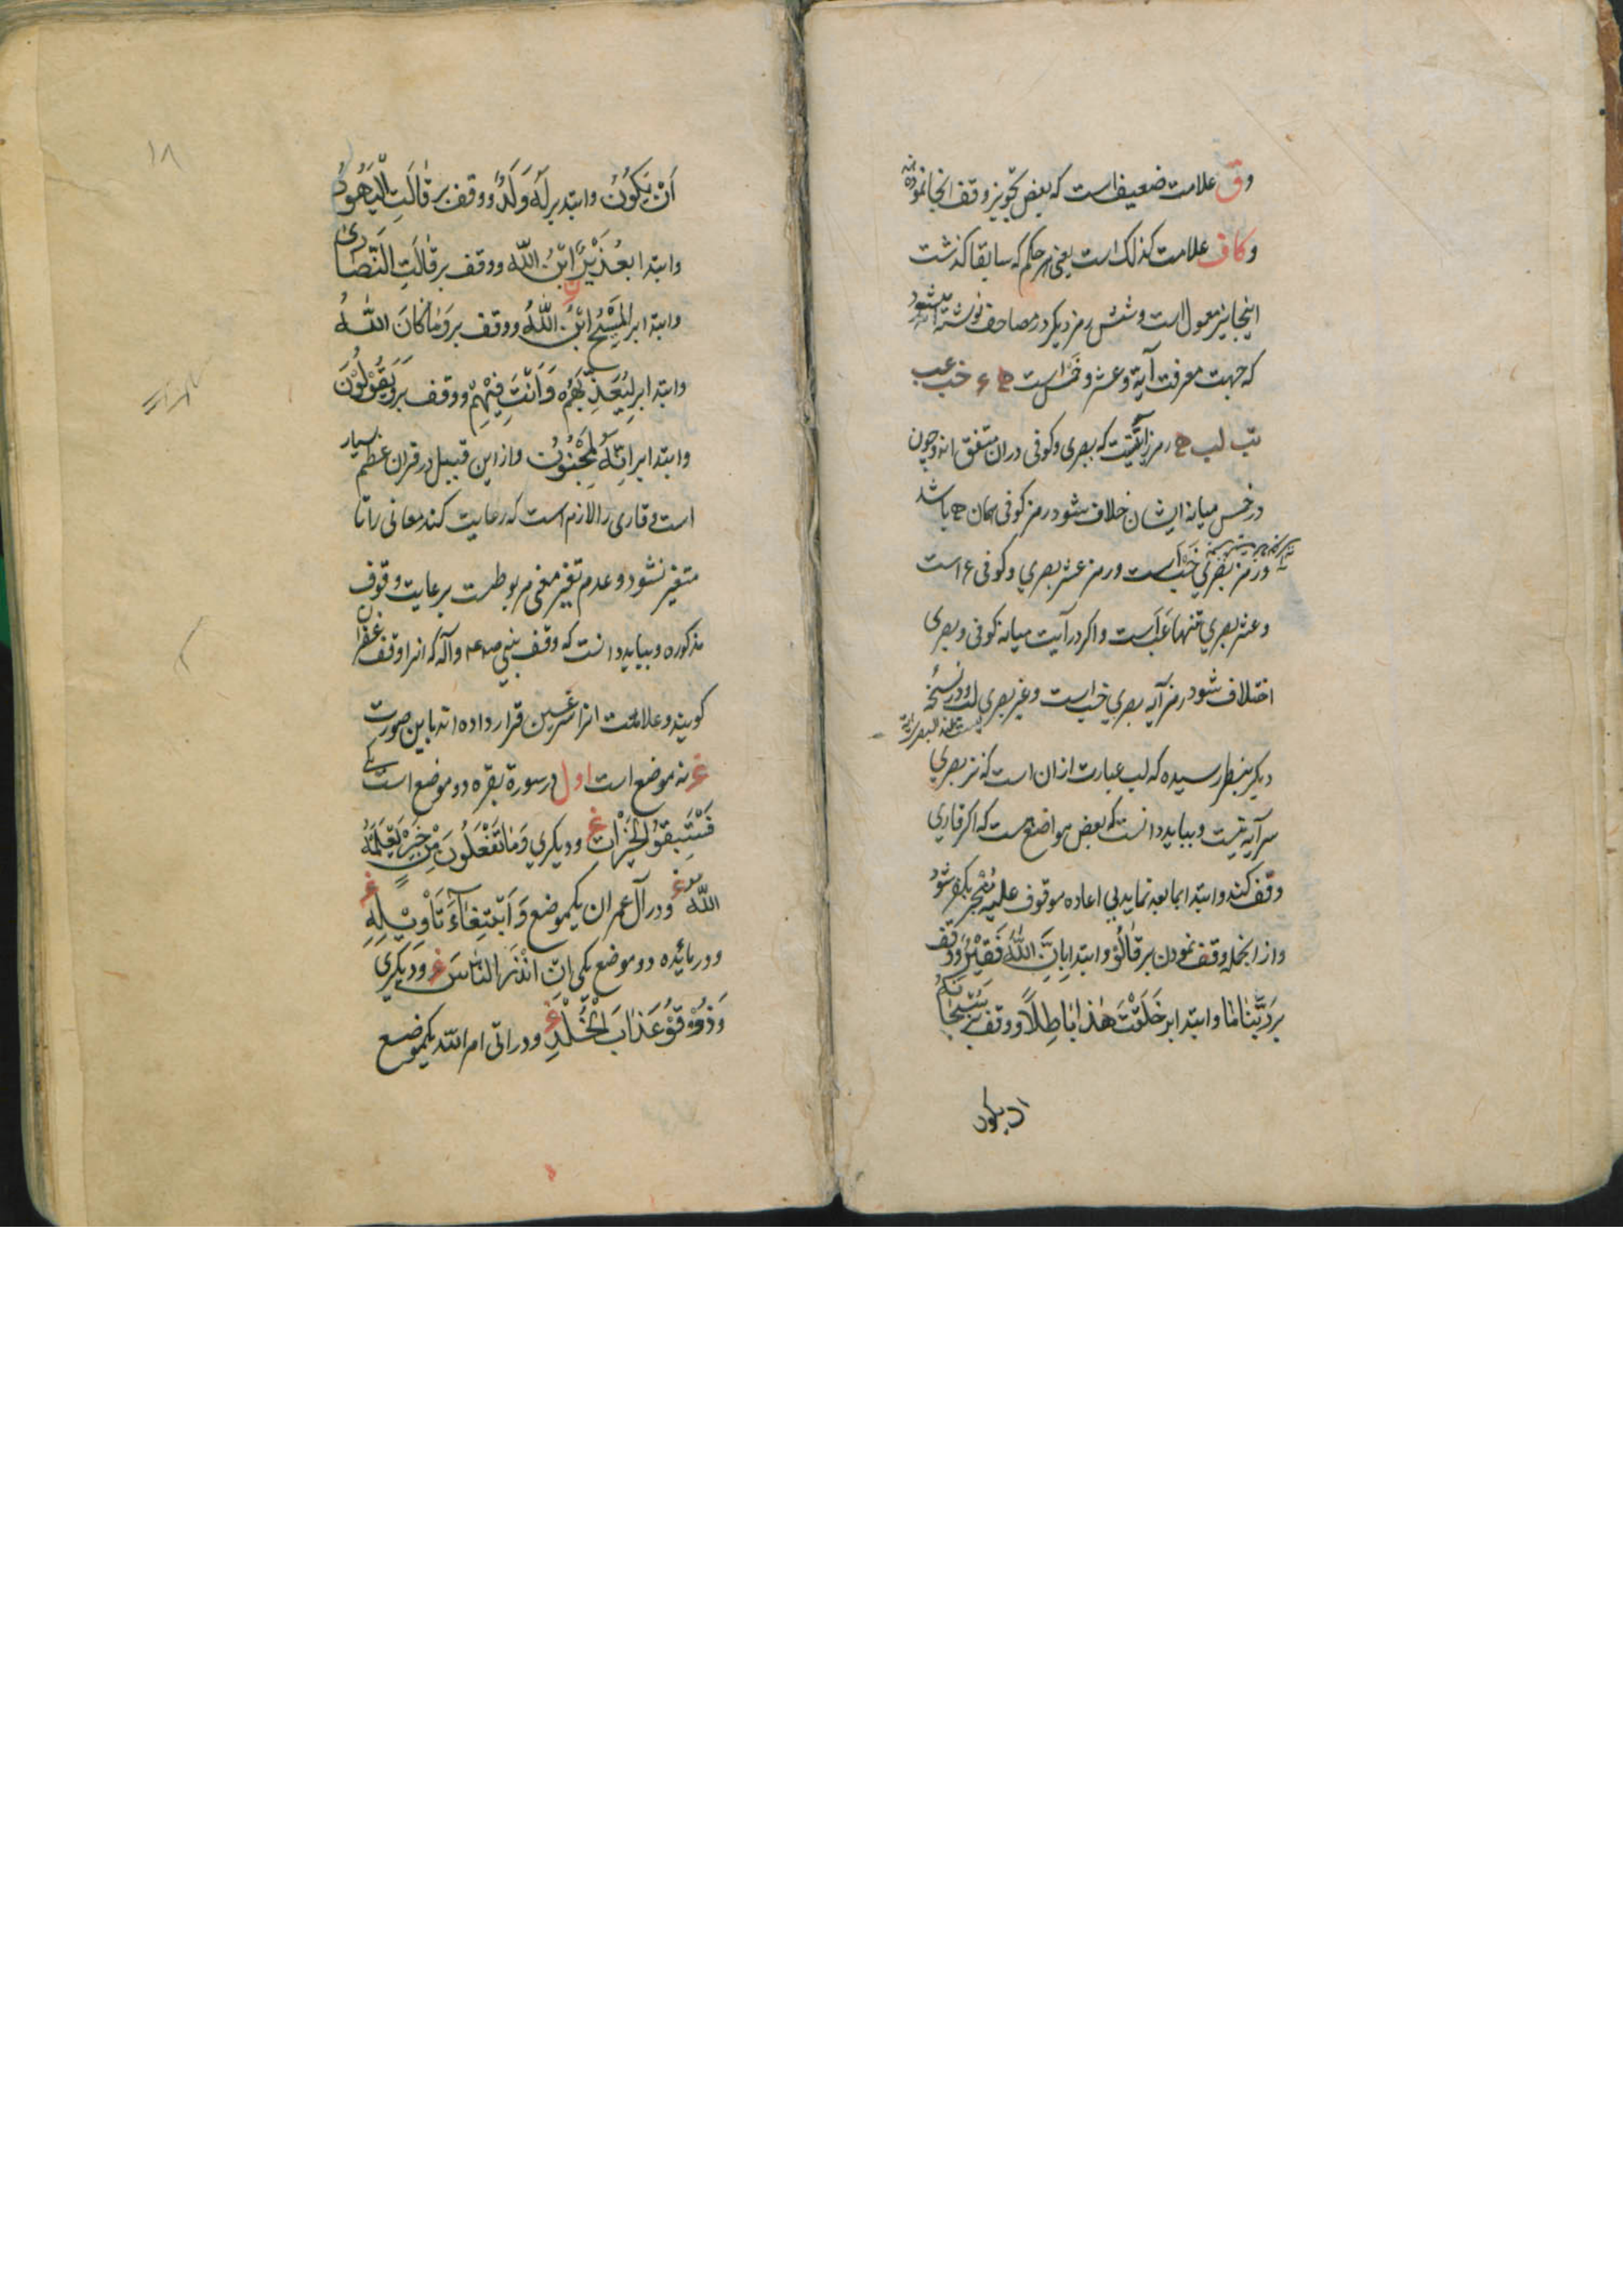 وق علامت ضعیف است که بعض تجویز وقف انجا نموده
وکاف علامت کذلک است یعنی هر حکم که سابقا کذشت
اینجا نیز معمول است و شش رمز دیکر در مصاحف نوشته میشود
که جهت معرفت آیة و عشر و خمس است ه ء خب عب
تب لب ه رمز آیتیست که بصری و کوفی در ان متفق اند و چون
در خمس میانه ایشان خلاف شود رمز کوفی همان ه باشد
و رمز بصری خب است و رمز عشر بصری و کوفی ء است
و عشر بصری تنها عب است و اکر در آیت میانه کوفی و بصری
اختلاف شود رمز آیه بصری تب است و غیر بصری لب و در نسخه
دیکر بنظر رسیده که لب عبارت از ان است که نزد بصری
سر آیه نیست و بباید دانست که بعض مواضع هست که اکر قاری
وقف کند و ابتدا بما بعد نماید بی اعاده موقوف علیه منجر بکفر شود
و از انجمله وقف نمودن بر قالُوْ و ابتدا باِنَّ اللّٰهَ فَقیْرٌ و وقف
بر رَبَّنا مٰا و ابتدا بر خَلَقْتَ هٰذا بٰاطِلًا و وقف بر سُبْحٰانَهُ
ان یکون
۱۸
اَنْ یَکُوْنُ و ابتدا بر لَهُ وَلَدٌ و وقف بر قٰالَتِ الْیَهُوْدُ
و ابتدا بعُزَیْرٌ ابْنُ اللّٰه و وقف بر قٰالَتِ النَّصٰاریٰ
و ابتدا بر المَسْیحُ ابْنُ اللّٰهُ و وقف بر وَمٰا کانَ اللّٰهُ
و ابتدا بر لِیُعَذِّبَهُمْ وَاَنْتَ فِیْهِمْ و وقف بر وَیَقُوْلُوْنَ
و ابتدا بر اِنَّهُ لَمَجْنُوْنٌ و از این قبیل در قران عظیم بسیار
است و قاری را لازم است که رعایت کند معانی را تا
متغیر نشود و عدم تغیر معنی مربوطست برعایت وقوف
مذکوره و بباید دانست که وقف نبی ص و آله که انرا وقف غفران
کویند و علامت انرا غین قرار داده اند باین صورت
غ نه موضع است اول در سورة بقره دو موضع است یکی
فَسْتَبِقوُ الخَیْرٰات غ و دیکری وَمٰا تَفْعَلُونَ مِنْ خَیْرٍ یَعْلَمْهُ
اللّٰه غ و در آل عمران یکموضع وَابْتِغٰاءَ تَأْویْلِهِ غ
و در مائده دو موضع یکی انْ انْذَر النٰاسَ غ و دیکری
وَذُوْقُوْ عَذٰابَ الْخُلْدِ غ و در اتی امر اللّه یکموضع